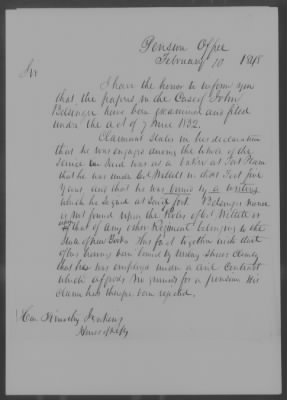 Pension Office
February 10 1848
Sir
I have the honor to inform you
that the papers in the Case of John
have been examined and filed
under the act of 7 June 1832.
Claimant states in his declaration
that he was engaged during the whole of the
service as a baker at Fort Plain
that he was under Col Willett in that Fort five
Years and that he was bound by a writing
which he signed at said fort. name
is not found upon the Rolls of Col Willetts or
that of any other Regiment belonging to the
State of New York. This fact together with that
of his having been bound by writing shows clearly
that he was employed under a civil contract
which affords no grounds for a pension. His
claim has therefore been rejected.
Hon Timothy Jenkins
House of Reps